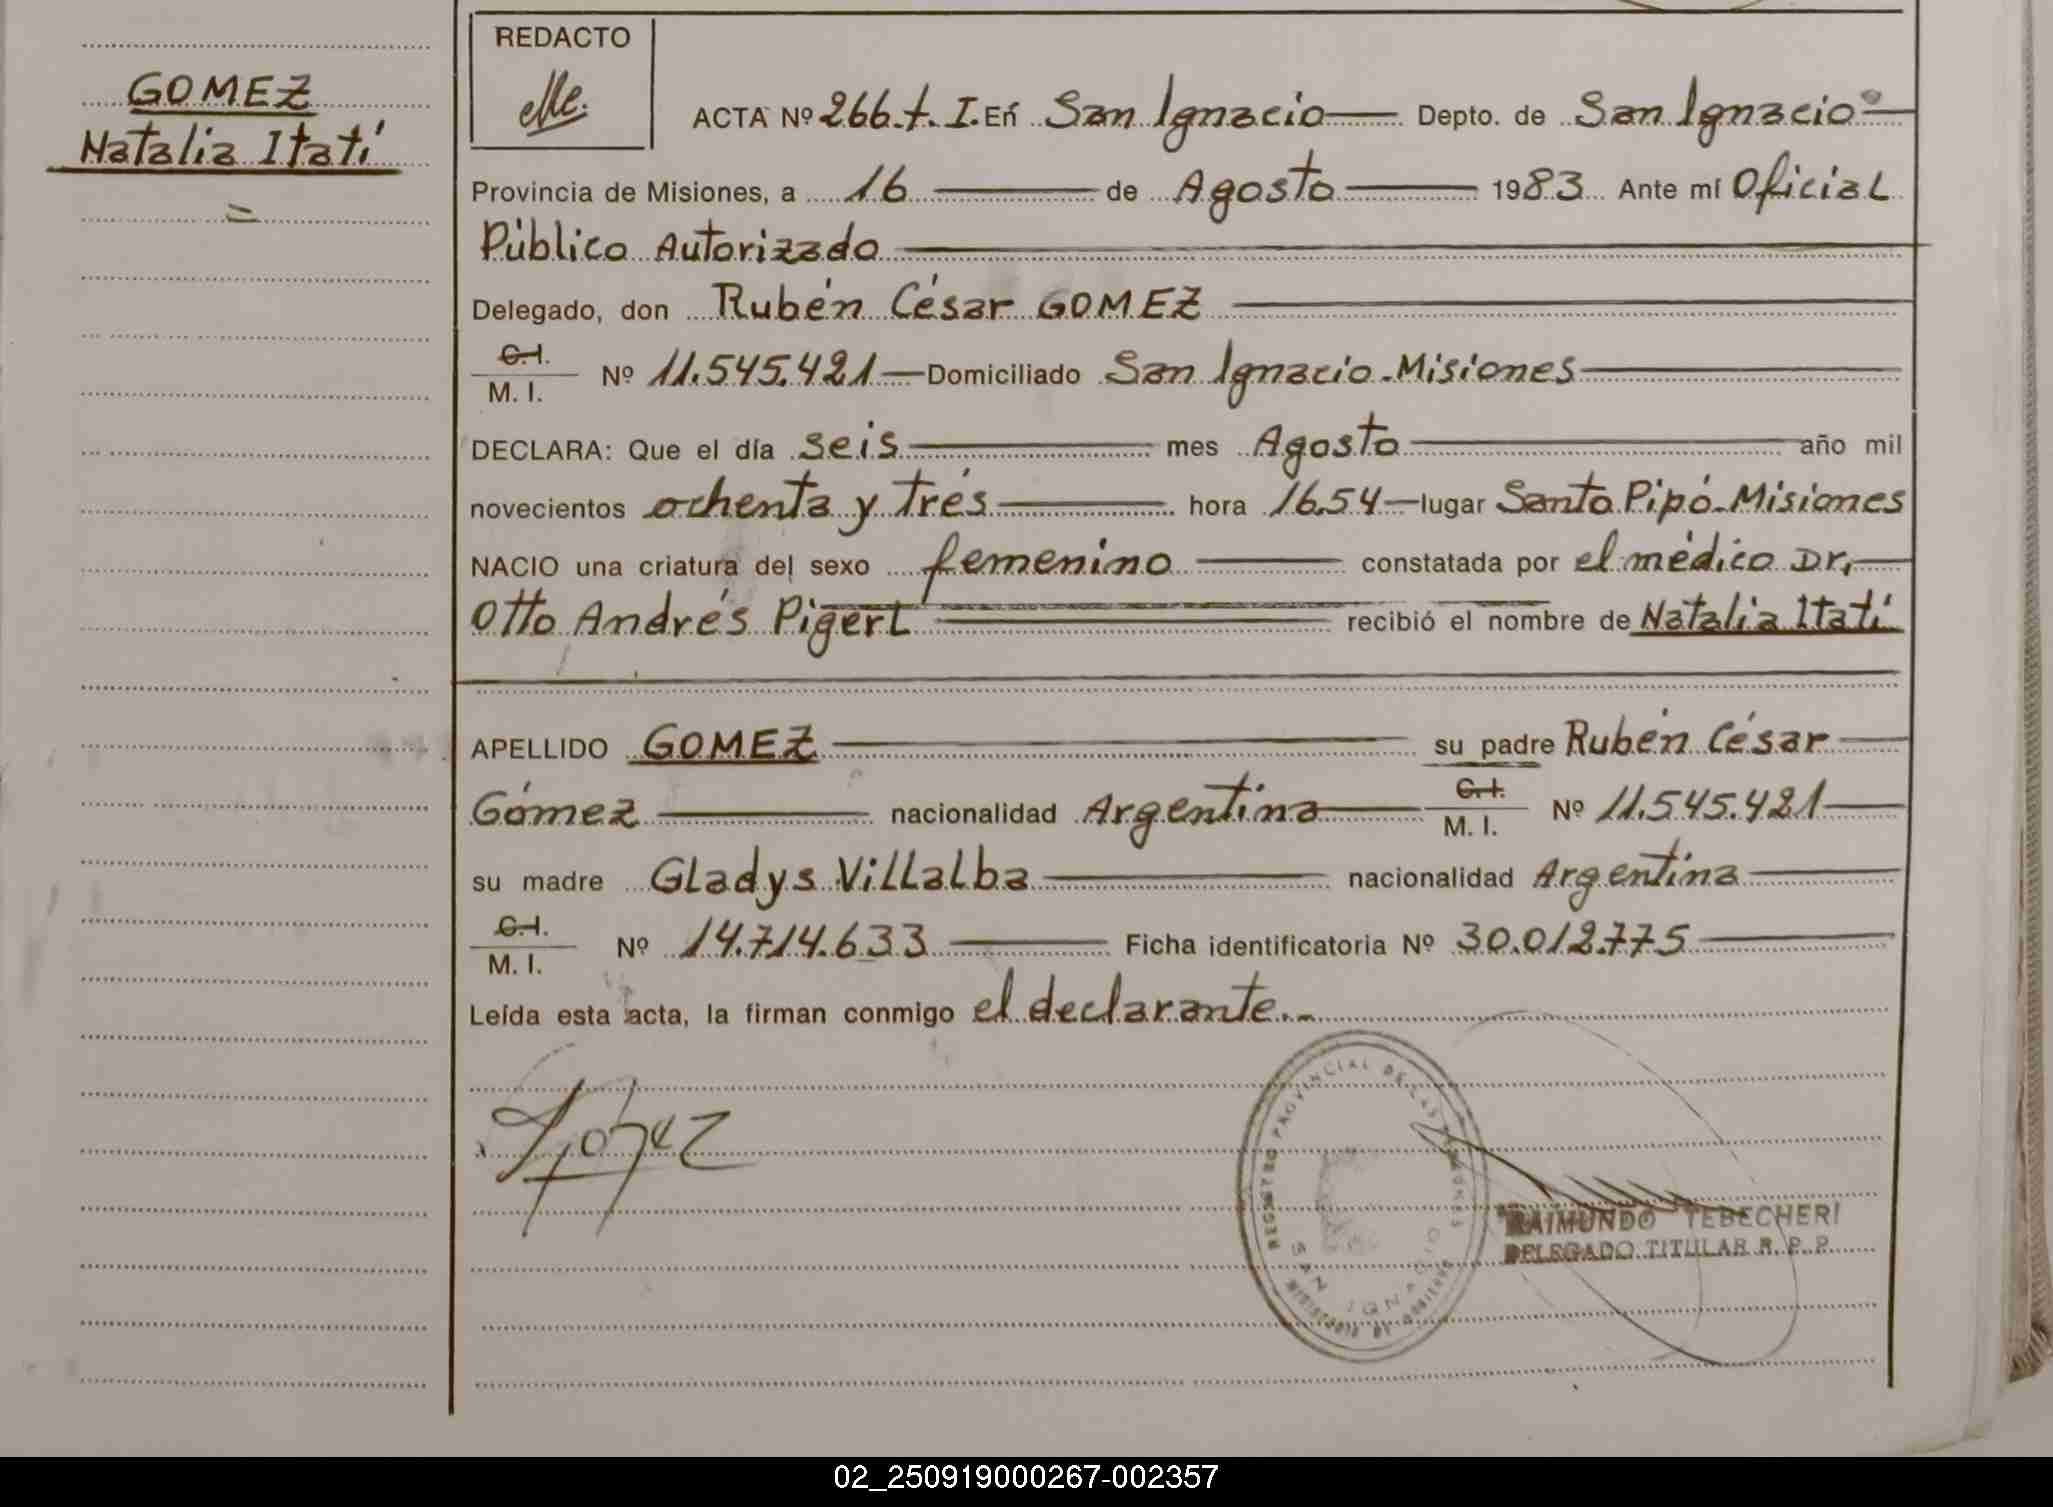 GOMEZ
Natalia Itatí
=
REDACTO
ACTA Nº 266. t. I. En San Ignacio — Depto. de San Ignacio —
Provincia de Misiones, a 16 — de Agosto — 1983 Ante mí Oficial
Público Autorizado —
Delegado, don Rubén César GOMEZ —
C. I.
M. I. Nº 11.545.421 — Domiciliado San Ignacio - Misiones —
DECLARA: Que el día seis — mes Agosto — año mil
novecientos ochenta y trés — hora 16.54 — lugar Santo Pipó - Misiones
NACIO una criatura del sexo femenino — constatada por el médico Dr. —
Otto Andrés Pigerl — recibió el nombre de Natalia Itatí
APELLIDO GOMEZ — su padre Rubén César —
Gómez — nacionalidad Argentina — C. I.
M. I. Nº 11.545.421 —
su madre Gladys Villalba — nacionalidad Argentina —
C. I.
M. I. Nº 14.714.633 — Ficha identificatoria Nº 30.012.775 —
Leída esta acta, la firman conmigo el declarante.-
REGISTRO PROVINCIAL DE LAS PERSONAS
SAN IGNACIO
MINISTERIO DE GOBIERNO
RAIMUNDO TEBECHERI
DELEGADO TITULAR R. P. P.
02_250919000267-002357